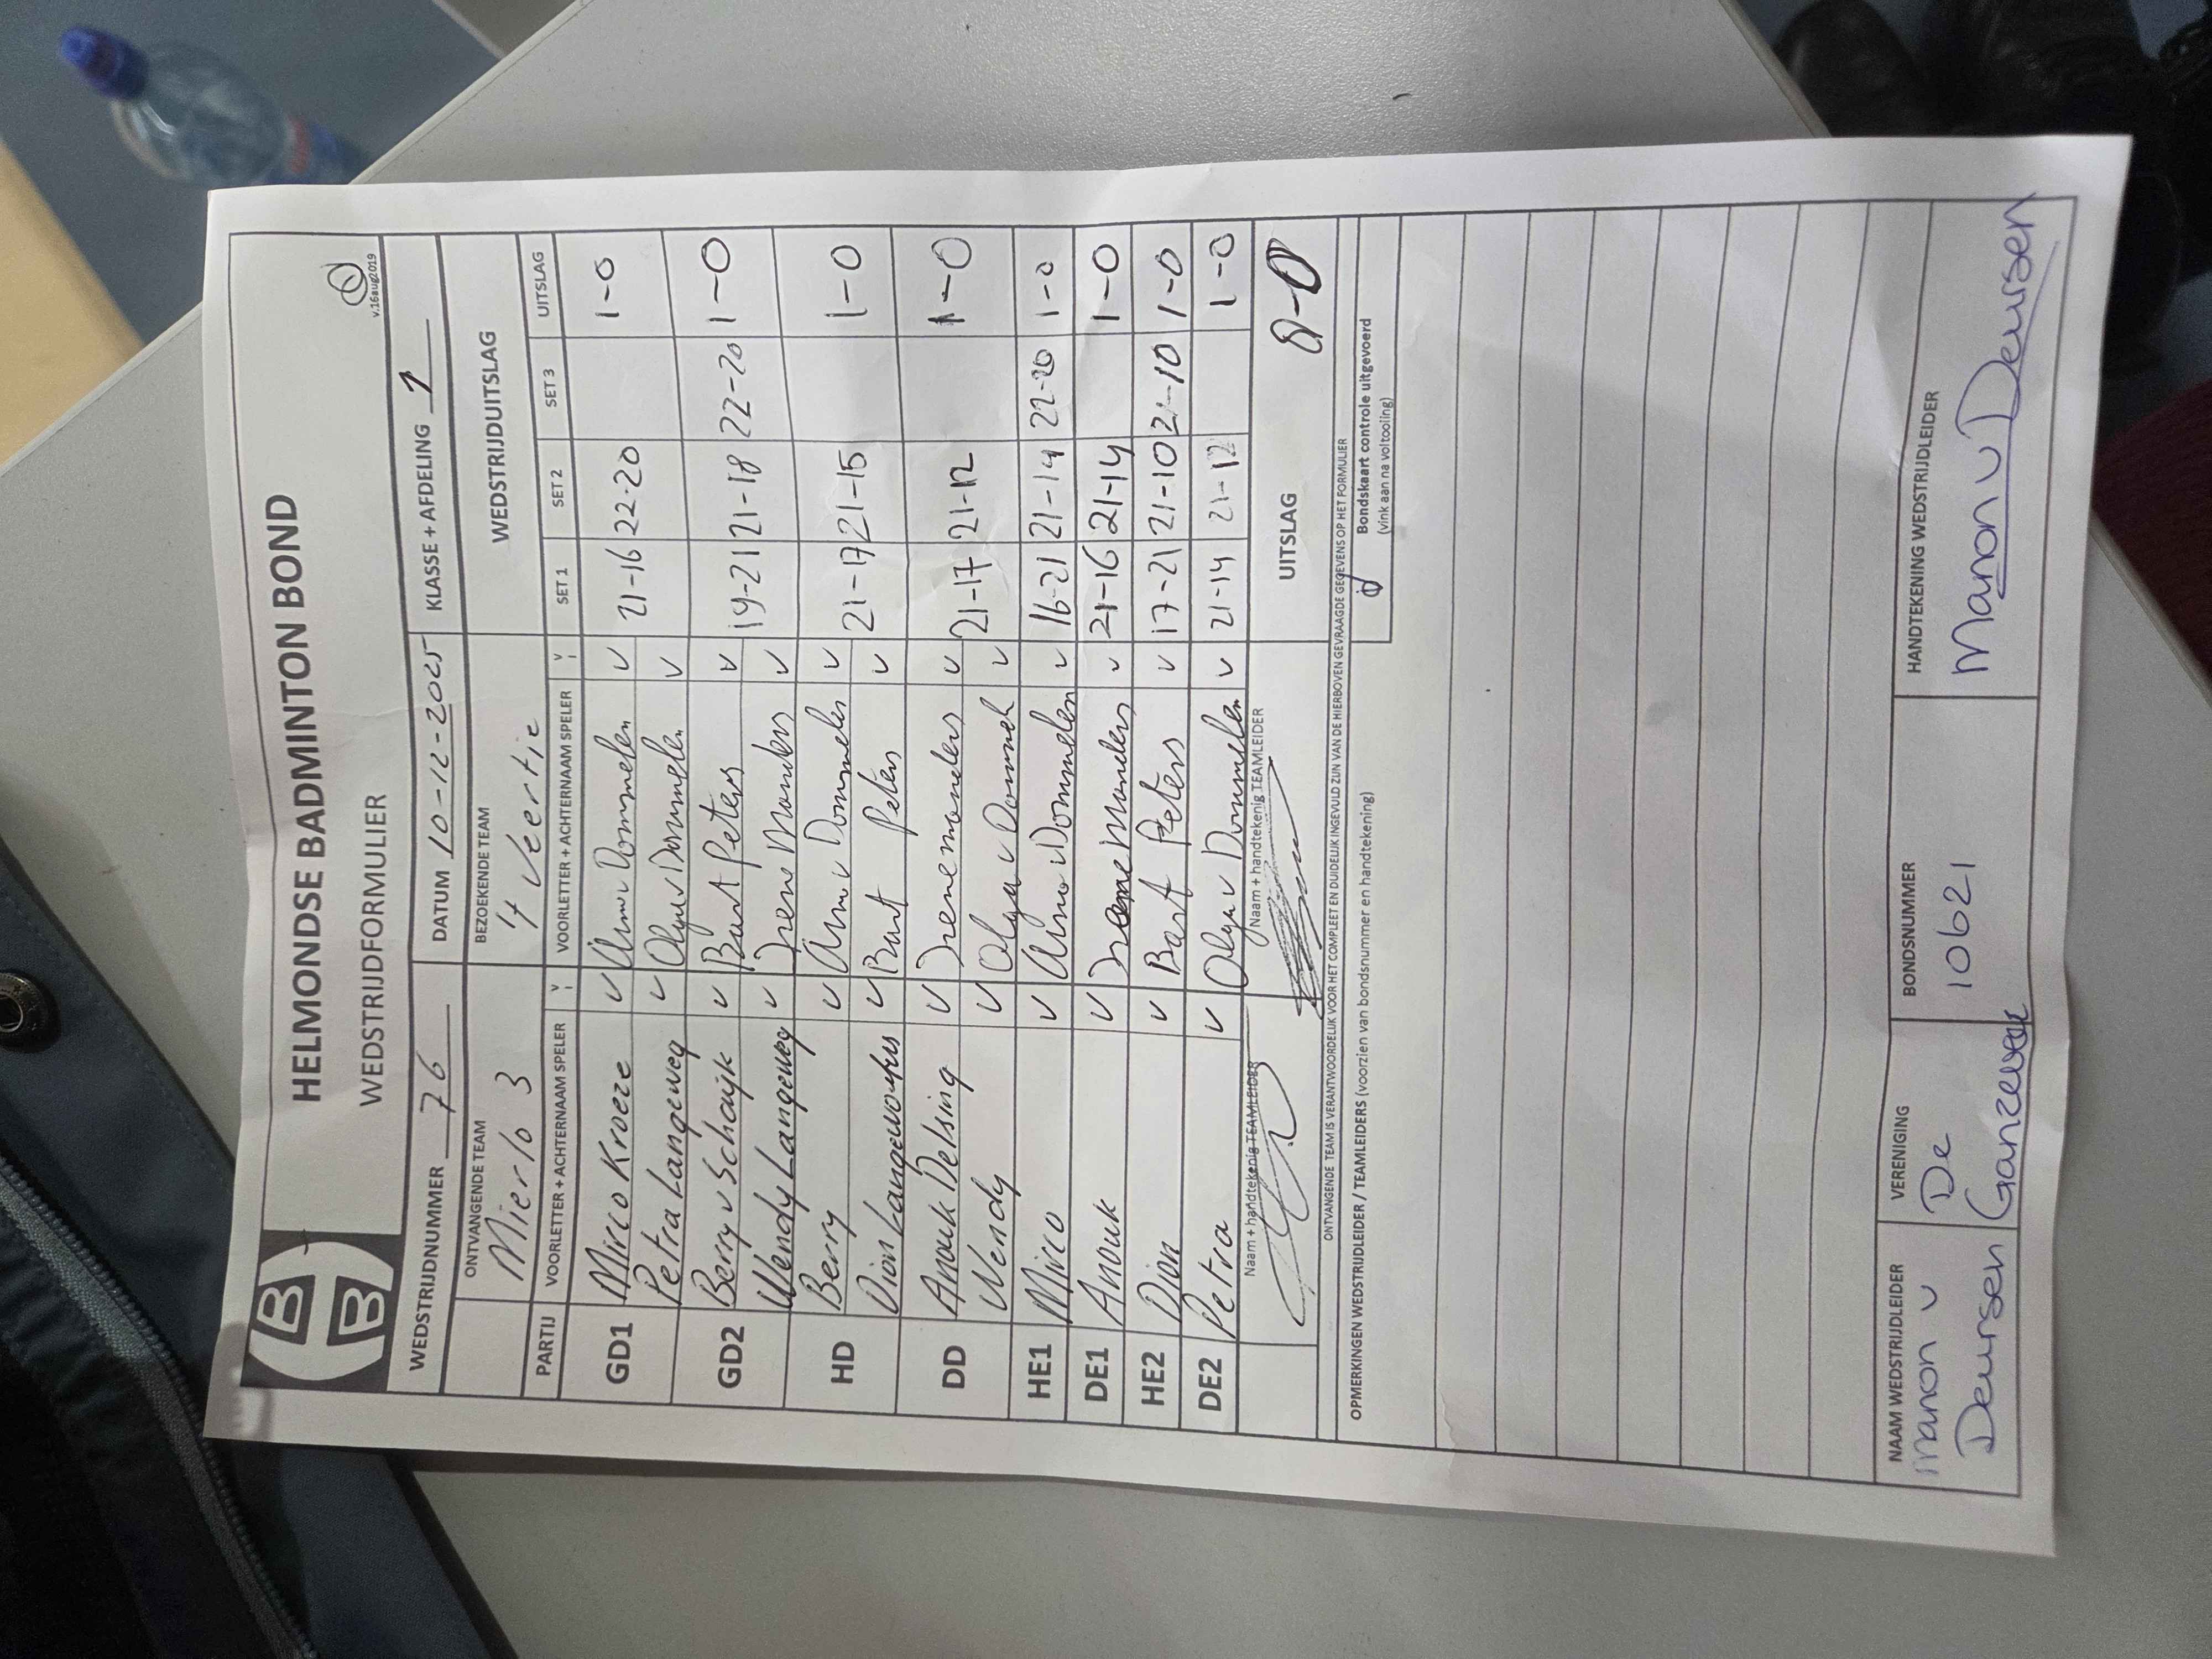 HELMONDSE BADMINTON BOND
WEDSTRIJDFORMULIER
v.16aug2019
WEDSTRIJDNUMMER 76 DATUM 10-12-2025 KLASSE + AFDELING 1
ONTVANGENDE TEAM BEZOEKENDE TEAM WEDSTRIJDUITSLAG
Mierlo 3 't Veertje
PARTIJ VOORLETTER + ACHTERNAAM SPELER V VOORLETTER + ACHTERNAAM SPELER V SET 1 SET 2 SET 3 UITSLAG
GD1 Mirco Kroeze v v Dommelen v 21-16 22-20 1-0
Petra Langeweg v Olga v Dommelen v
GD2 Berry v Schaijk v Bart Peters v 19-21 21-18 22-20 1-0
Wendy Langeweg v Irene Manders v
HD Berry v v Dommelen v 21-17 21-15 1-0
Dion v Bart Peters v
DD Anouk Delsing v Irene manders v 21-17 21-12 1-0
Wendy v Olga v Dommel v
HE1 Mirco v v Dommelen v 16-21 21-14 22-20 1-0
DE1 Anouk v Irene Manders v 21-16 21-14 1-0
HE2 Dion v Bart Peters v 17-21 21-10 21-10 1-0
DE2 Petra v Olga v Dommelen v 21-14 21-12 1-0
Naam + handtekenig TEAMLEIDER Naam + handtekenig TEAMLEIDER UITSLAG 8-0
ONTVANGENDE TEAM IS VERANTWOORDELIJK VOOR HET COMPLEET EN DUIDELIJK INGEVULD ZIJN VAN DE HIERBOVEN GEVRAAGDE GEGEVENS OP HET FORMULIER
OPMERKINGEN WEDSTRIJDLEIDER / TEAMLEIDERS (voorzien van bondsnummer en handtekening) Bondskaart controle uitgevoerd
(vink aan na voltooiing)
NAAM WEDSTRIJDLEIDER VERENIGING BONDSNUMMER HANDTEKENING WEDSTRIJDLEIDER
manon v De 10621 Manon v Deursen
Deursen Ganzeveer